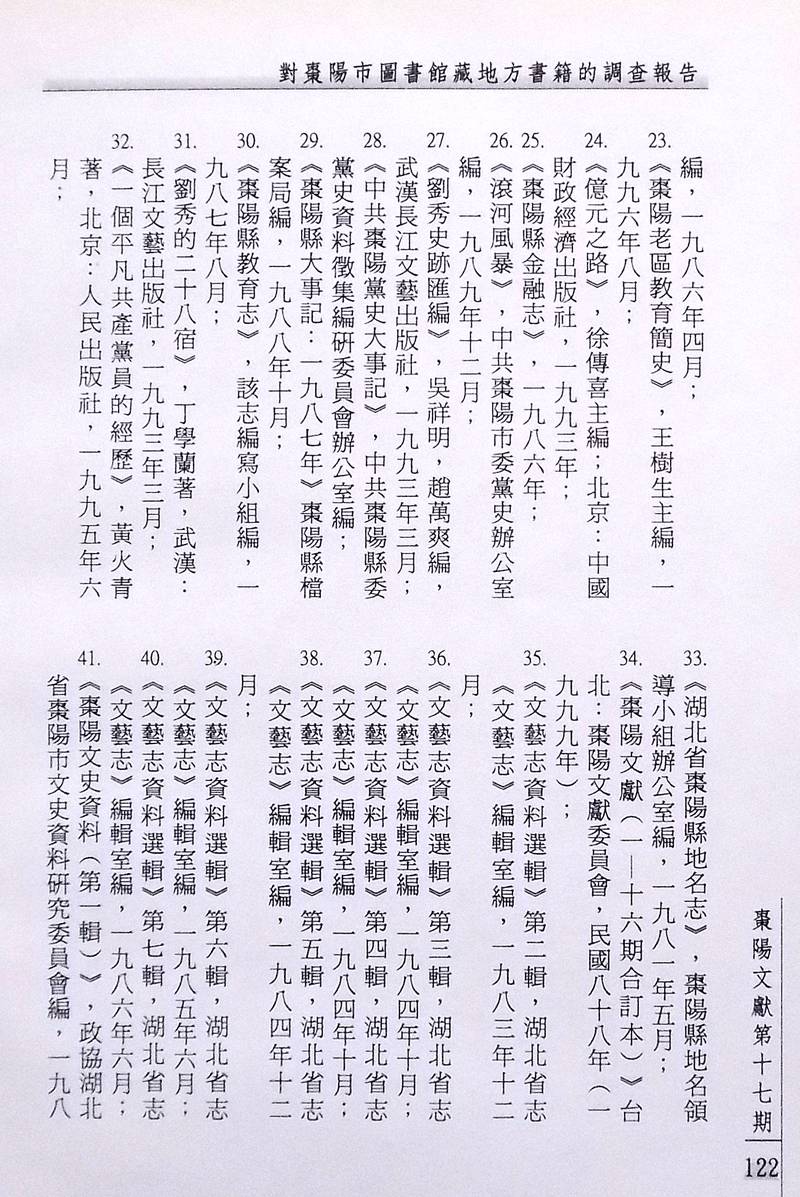 對棗陽市圖書館藏地方書籍的調查報告
編，一九八六年四月；
23.《棗陽老區教育簡史》，王樹生主編，一
九九六年八月；
24.《億元之路》，徐傳喜主編；北京：中國
財政經濟出版社，一九九三年；
25.《棗陽縣金融志》，一九八六年；
26.《滾河風暴》，中共棗陽市委黨史辦公室
編，一九八九年十二月；
27.《劉秀史跡匯編》，吳祥明，趙萬爽編，
武漢長江文藝出版社，一九九三年三月；
28.《中共棗陽黨史大事記》，中共棗陽縣委
黨史資料徵集編研委員會辦公室編；
29.《棗陽縣大事記：一九八七年》棗陽縣檔
案局編，一九八八年十月；
30.《棗陽縣教育志》，該志編寫小組編，一
九八七年八月；
31.《劉秀的二十八宿》，丁學蘭著，武漢：
長江文藝出版社，一九九三年三月；
32.《一個平凡共產黨員的經歷》，黃火青
著，北京：人民出版社，一九九五年六
月；
33.《湖北省棗陽縣地名志》，棗陽縣地名領
導小組辦公室編，一九八一年五月；
34.《棗陽文獻（一—十六期合訂本）》台
北：棗陽文獻委員會，民國八十八年（一
九九九年）；
35.《文藝志資料選輯》第二輯，湖北省志
《文藝志》編輯室編，一九八三年十二
月；
36.《文藝志資料選輯》第三輯，湖北省志
《文藝志》編輯室編，一九八四年十月；
37.《文藝志資料選輯》第四輯，湖北省志
《文藝志》編輯室編，一九八四年十月；
38.《文藝志資料選輯》第五輯，湖北省志
《文藝志》編輯室編，一九八四年十二
月；
39.《文藝志資料選輯》第六輯，湖北省志
《文藝志》編輯室編，一九八五年六月；
40.《文藝志資料選輯》第七輯，湖北省志
《文藝志》編輯室編，一九八六年六月；
41.《棗陽文史資料（第一輯）》，政協湖北
省棗陽市文史資料研究委員會編，一九八
棗陽文獻第十七期
122